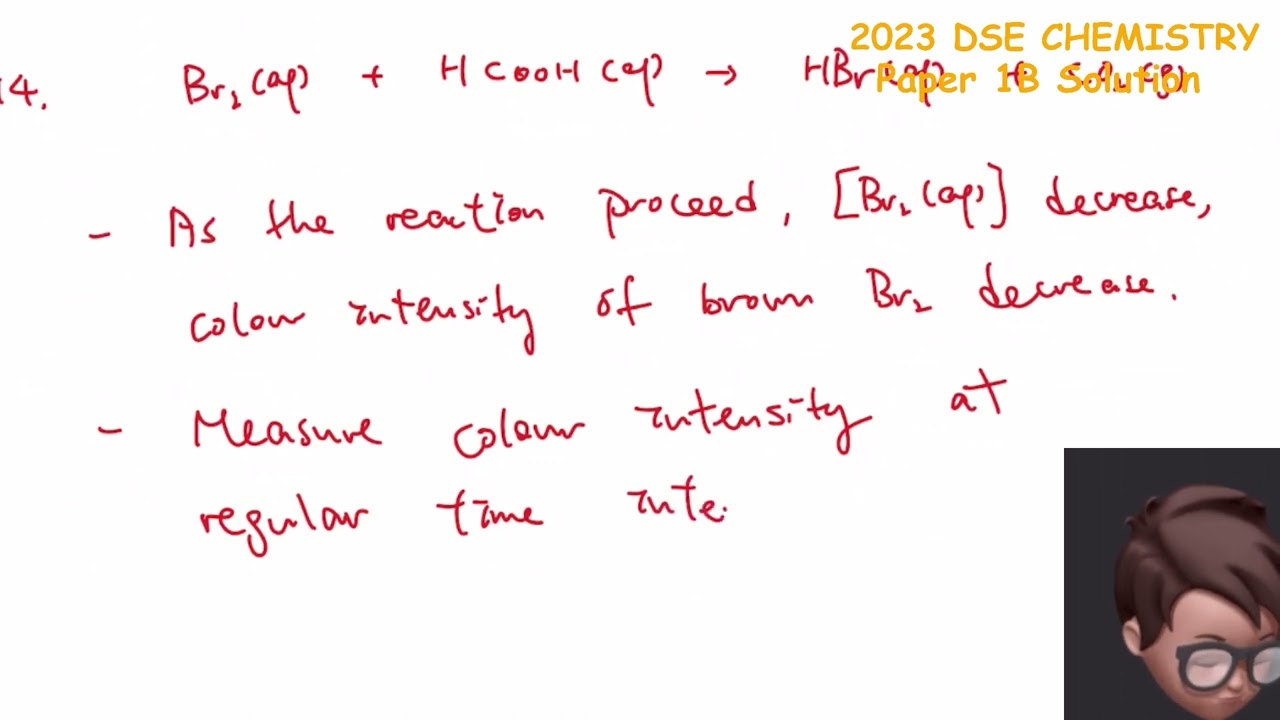 2023 DSE CHEMISTRY
Paper 1B Solution
14. Br₂(aq) + HCOOH(aq) → HBr(aq) +
- As the reaction proceed, [Br₂(aq)] decrease,
colour intensity of brown Br₂ decrease.
- Measure colour intensity at
regular time inte